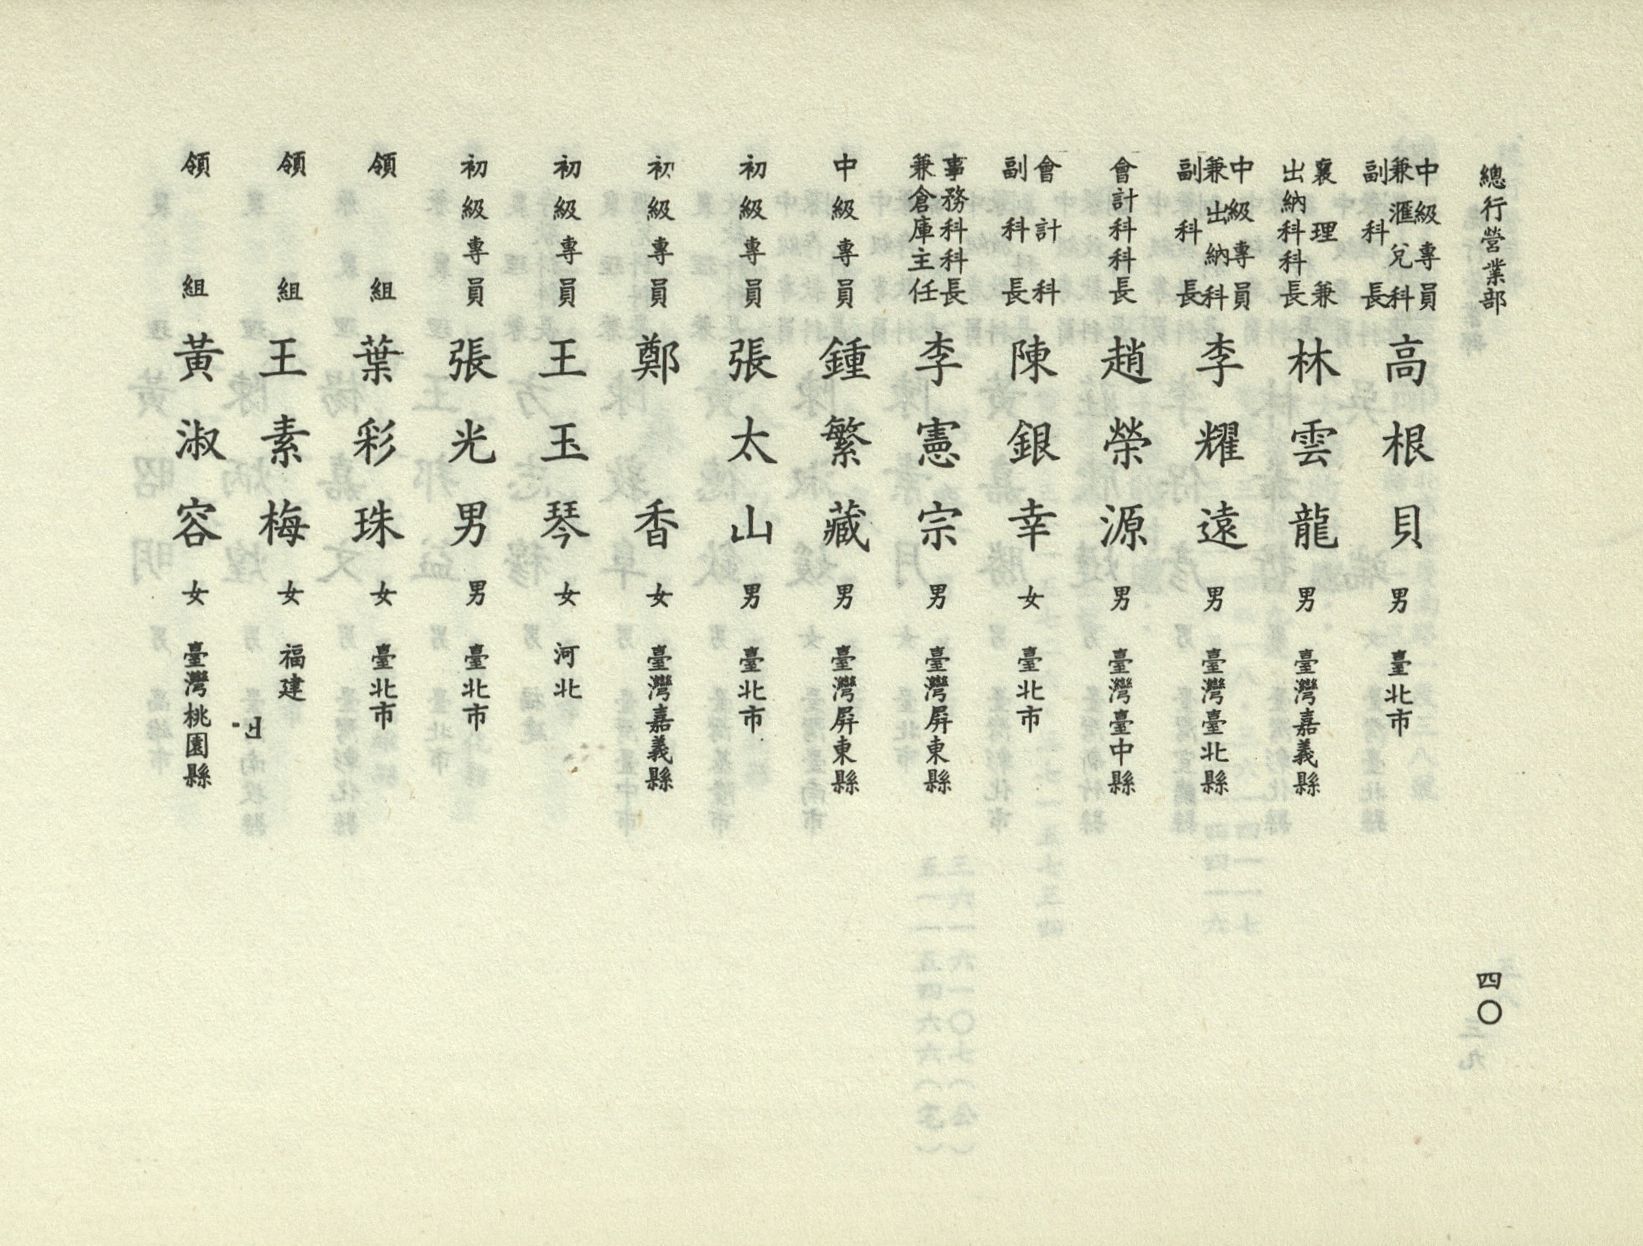 總行營業部
中級專員兼滙兌科副科長 高根貝 男 臺北市
襄理兼出納科科長 林雲龍 男 臺灣嘉義縣
中級專員兼出納科副科長 李耀遠 男 臺灣臺北縣
會計科科長 趙榮源 男 臺灣臺中縣
會計科副科長 陳銀幸 女 臺北市
事務科科長兼倉庫主任 李憲宗 男 臺灣屏東縣
中級專員 鍾繁藏 男 臺灣屏東縣
初級專員 張太山 男 臺北市
初級專員 鄭香 女 臺灣嘉義縣
初級專員 王玉琴 女 河北
初級專員 張光男 男 臺北市
領組 葉彩珠 女 臺北市
領組 王素梅 女 福建
領組 黃淑容 女 臺灣桃園縣
四〇